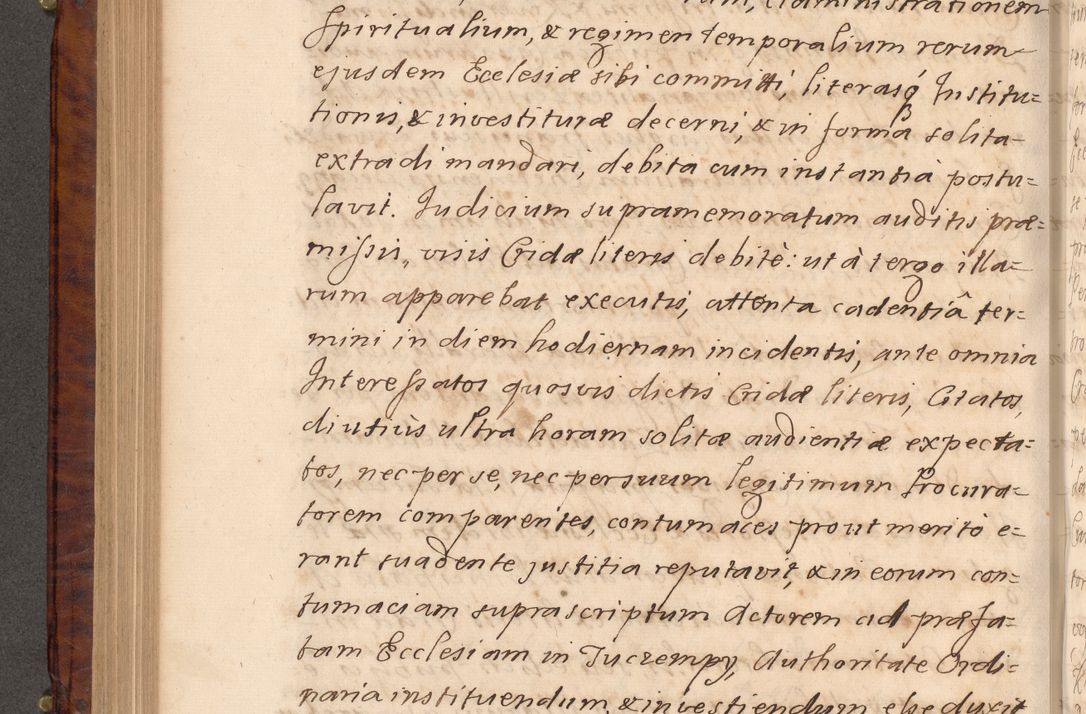 administrationem
Spiritualium, & regimen temporalium rerum
ejusdem Ecclesiæ sibi committi, literasq́ Institu=
tionis, & investituræ decerni, & in formâ solita
extradi mandari, debita cum instantiâ postu=
lavit. Judicium supramemoratum auditis præ=
missis, visis Cridæ literis debitè: ut à tergo illa=
rum apparebat executis, attenta cadentiâ ter=
mini in diem hodiernam incidentis, ante omnia
Interessatos quosvis dictis Cridæ literis, Citatos,
diutiùs ultra horam solitæ audientiæ expecta=
tos, nec per se, nec per suum legitimum Procura=
torem comparentes, contumaces prout meritò e=
rant suadente justitia reputavit, & in eorum con=
tumaciam suprascriptum Actorem ad præfa=
tam Ecclesiam in Tuczempy, Authoritate Ordi=
naria instituendum, & investiendum esse duxit